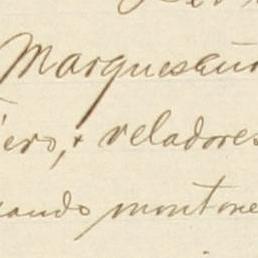 Marquesaur
ero, & veladores
ando montone